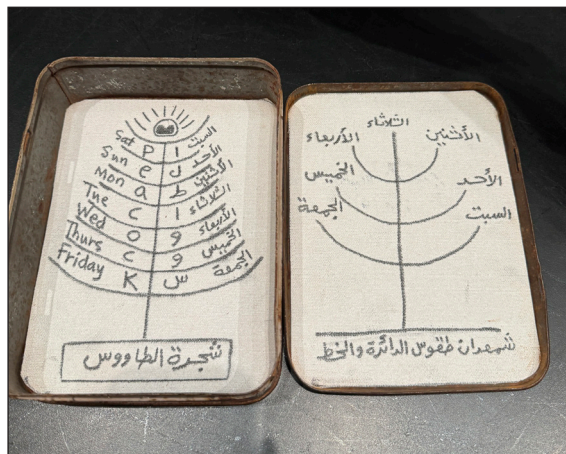 Sat P ا السبت
Sun e ل الأحد
Mon a ط الأثنين
Tue c ا الثلاثاء
Wed o و الأربعاء
Thurs c و الخميس
Friday K س الجمعة
شجرة الطاووس
الثلاثاء
الأربعاء الأثنين
الخميس الأحد
الجمعة السبت
شمعدان طقوس الدائرة والخط